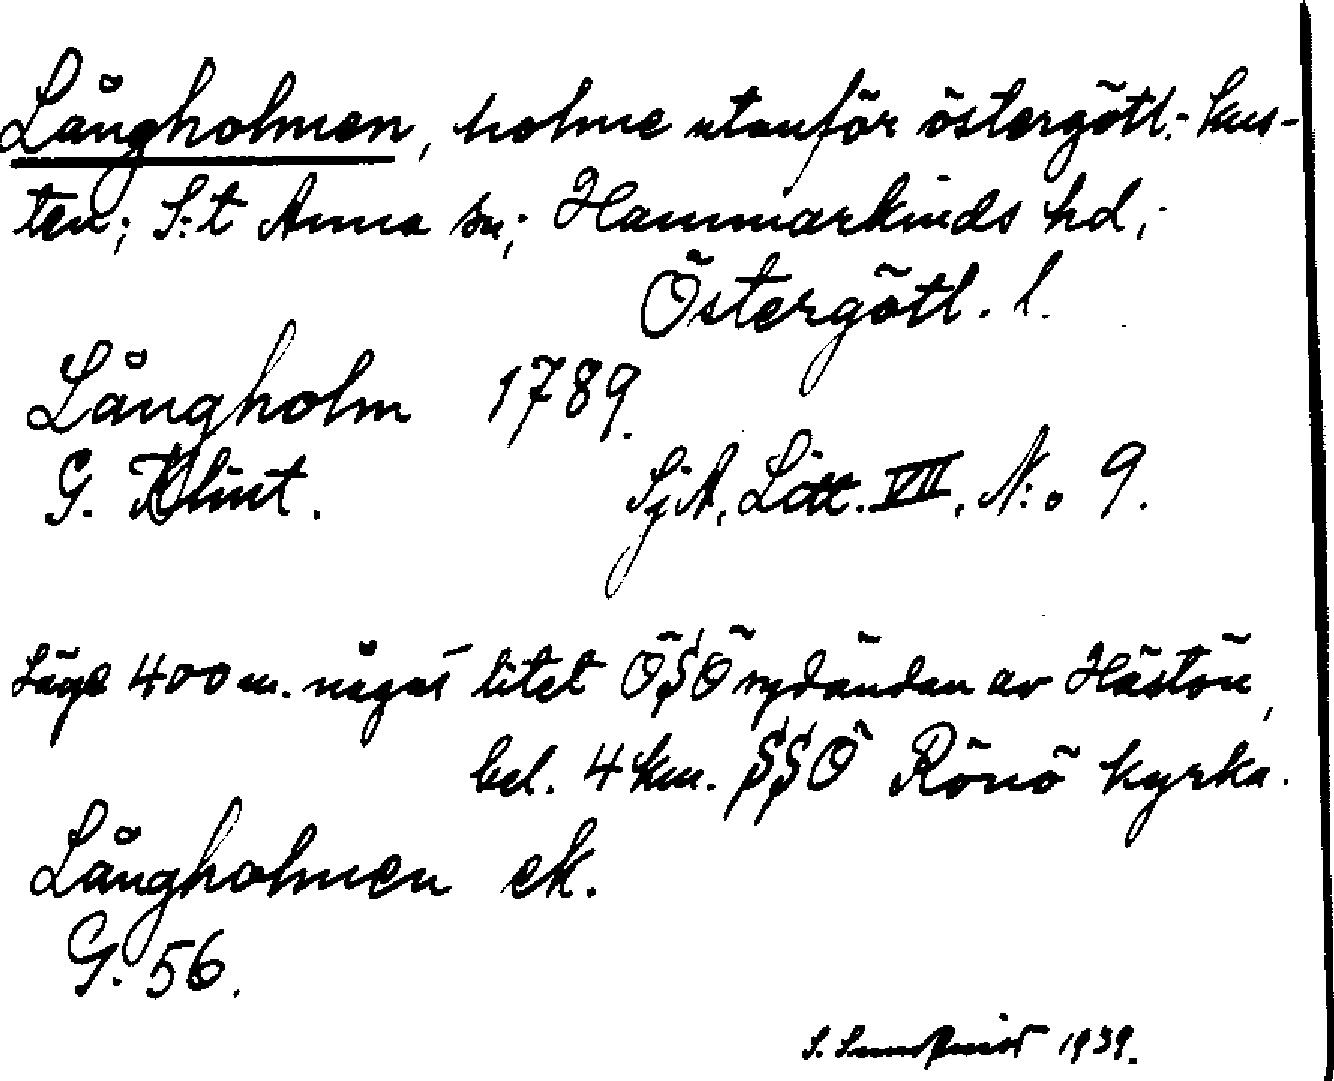 Långholmen, holme utanför östergötl.- kus-
ten; S:t Anna sn; Hammarkinds hd,-
Östergötl. l.
Långholm 1789.
G. Klint. SjA, Litt. VII, N:o 9.
Läge 400 m. något litet ÖSÖ sydändan av Hästön,
bel. 4 km. SSO Rönö kyrka.
Långholmen ek.
G. 56.
S. Sundquist 1939.